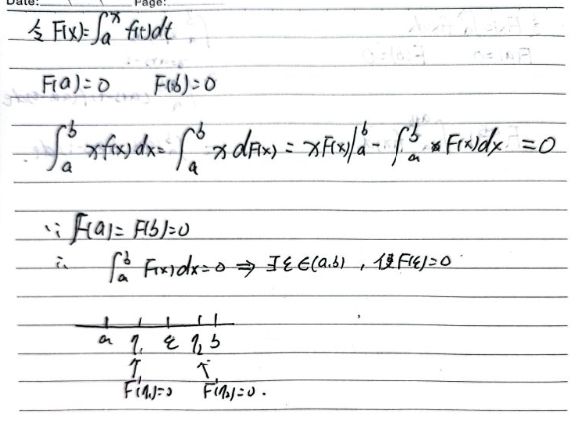 Date: Page:
令 F(x)=∫ₐˣ f(t)dt
F(a)=0 F(b)=0
∫ₐᵇ xf(x)dx=∫ₐᵇ x dF(x) = xF(x)|ₐᵇ - ∫ₐᵇ F(x)dx =0
∵ F(a)=F(b)=0
∴ ∫ₐᵇ F(x)dx=0 ⇒ ∃ξ∈(a,b) , 使F(ξ)=0
a η₁ ξ η₂ b
↑ ↑
F'(η₁)=0 F'(η₂)=0.